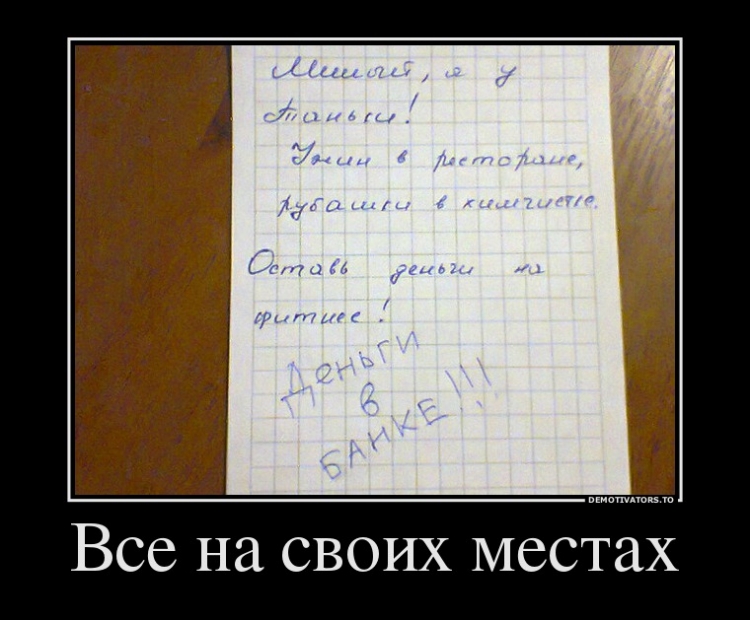 Милый, я у
Таньки!
Ужин в ресторане,
рубашки в химчистке.
Оставь деньги на
фитнес!
Деньги
в
БАНКЕ!!!
DEMOTIVATORS.TO
Все на своих местах